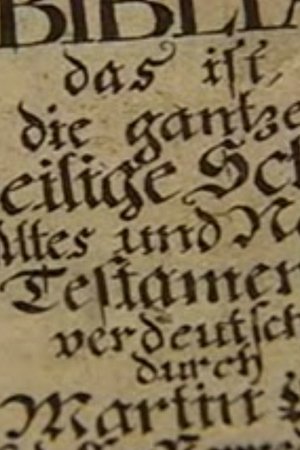 BIBLIA
das ist,
die gantze
eilige Sch
Altes und N
Testamen
verdeutsch
durch
Martin